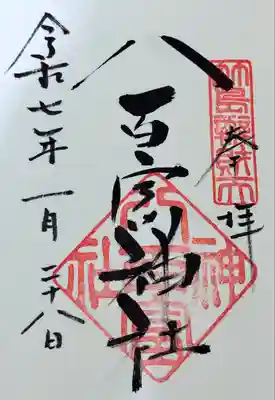 奉拝
八百富神社
令和七年一月二十八日
八百富神社